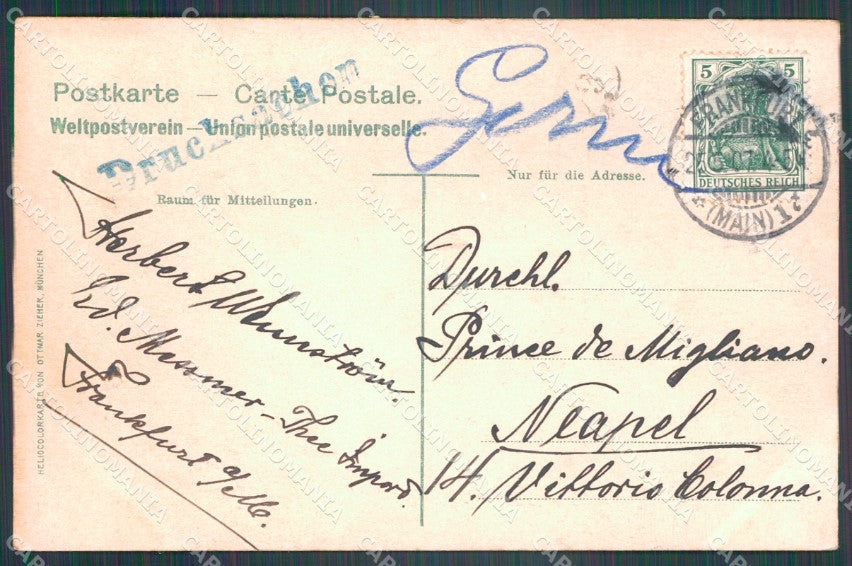 Postkarte — Carte Postale.
Weltpostverein — Union postale universelle.
Drucksachen
Nur für die Adresse.
Raum für Mitteilungen.
5 5
DEUTSCHES REICH
FRANKFURT
(MAIN) 1
Durchl.
Prince de Migliano.
Neapel
14. Vittorio Colonna.
Herbert
Messmer-Thee Import.
Frankfurt a/M.
HELIOCOLORKARTE VON OTTMAR ZIEHER, MÜNCHEN
CARTOLINOMANIA